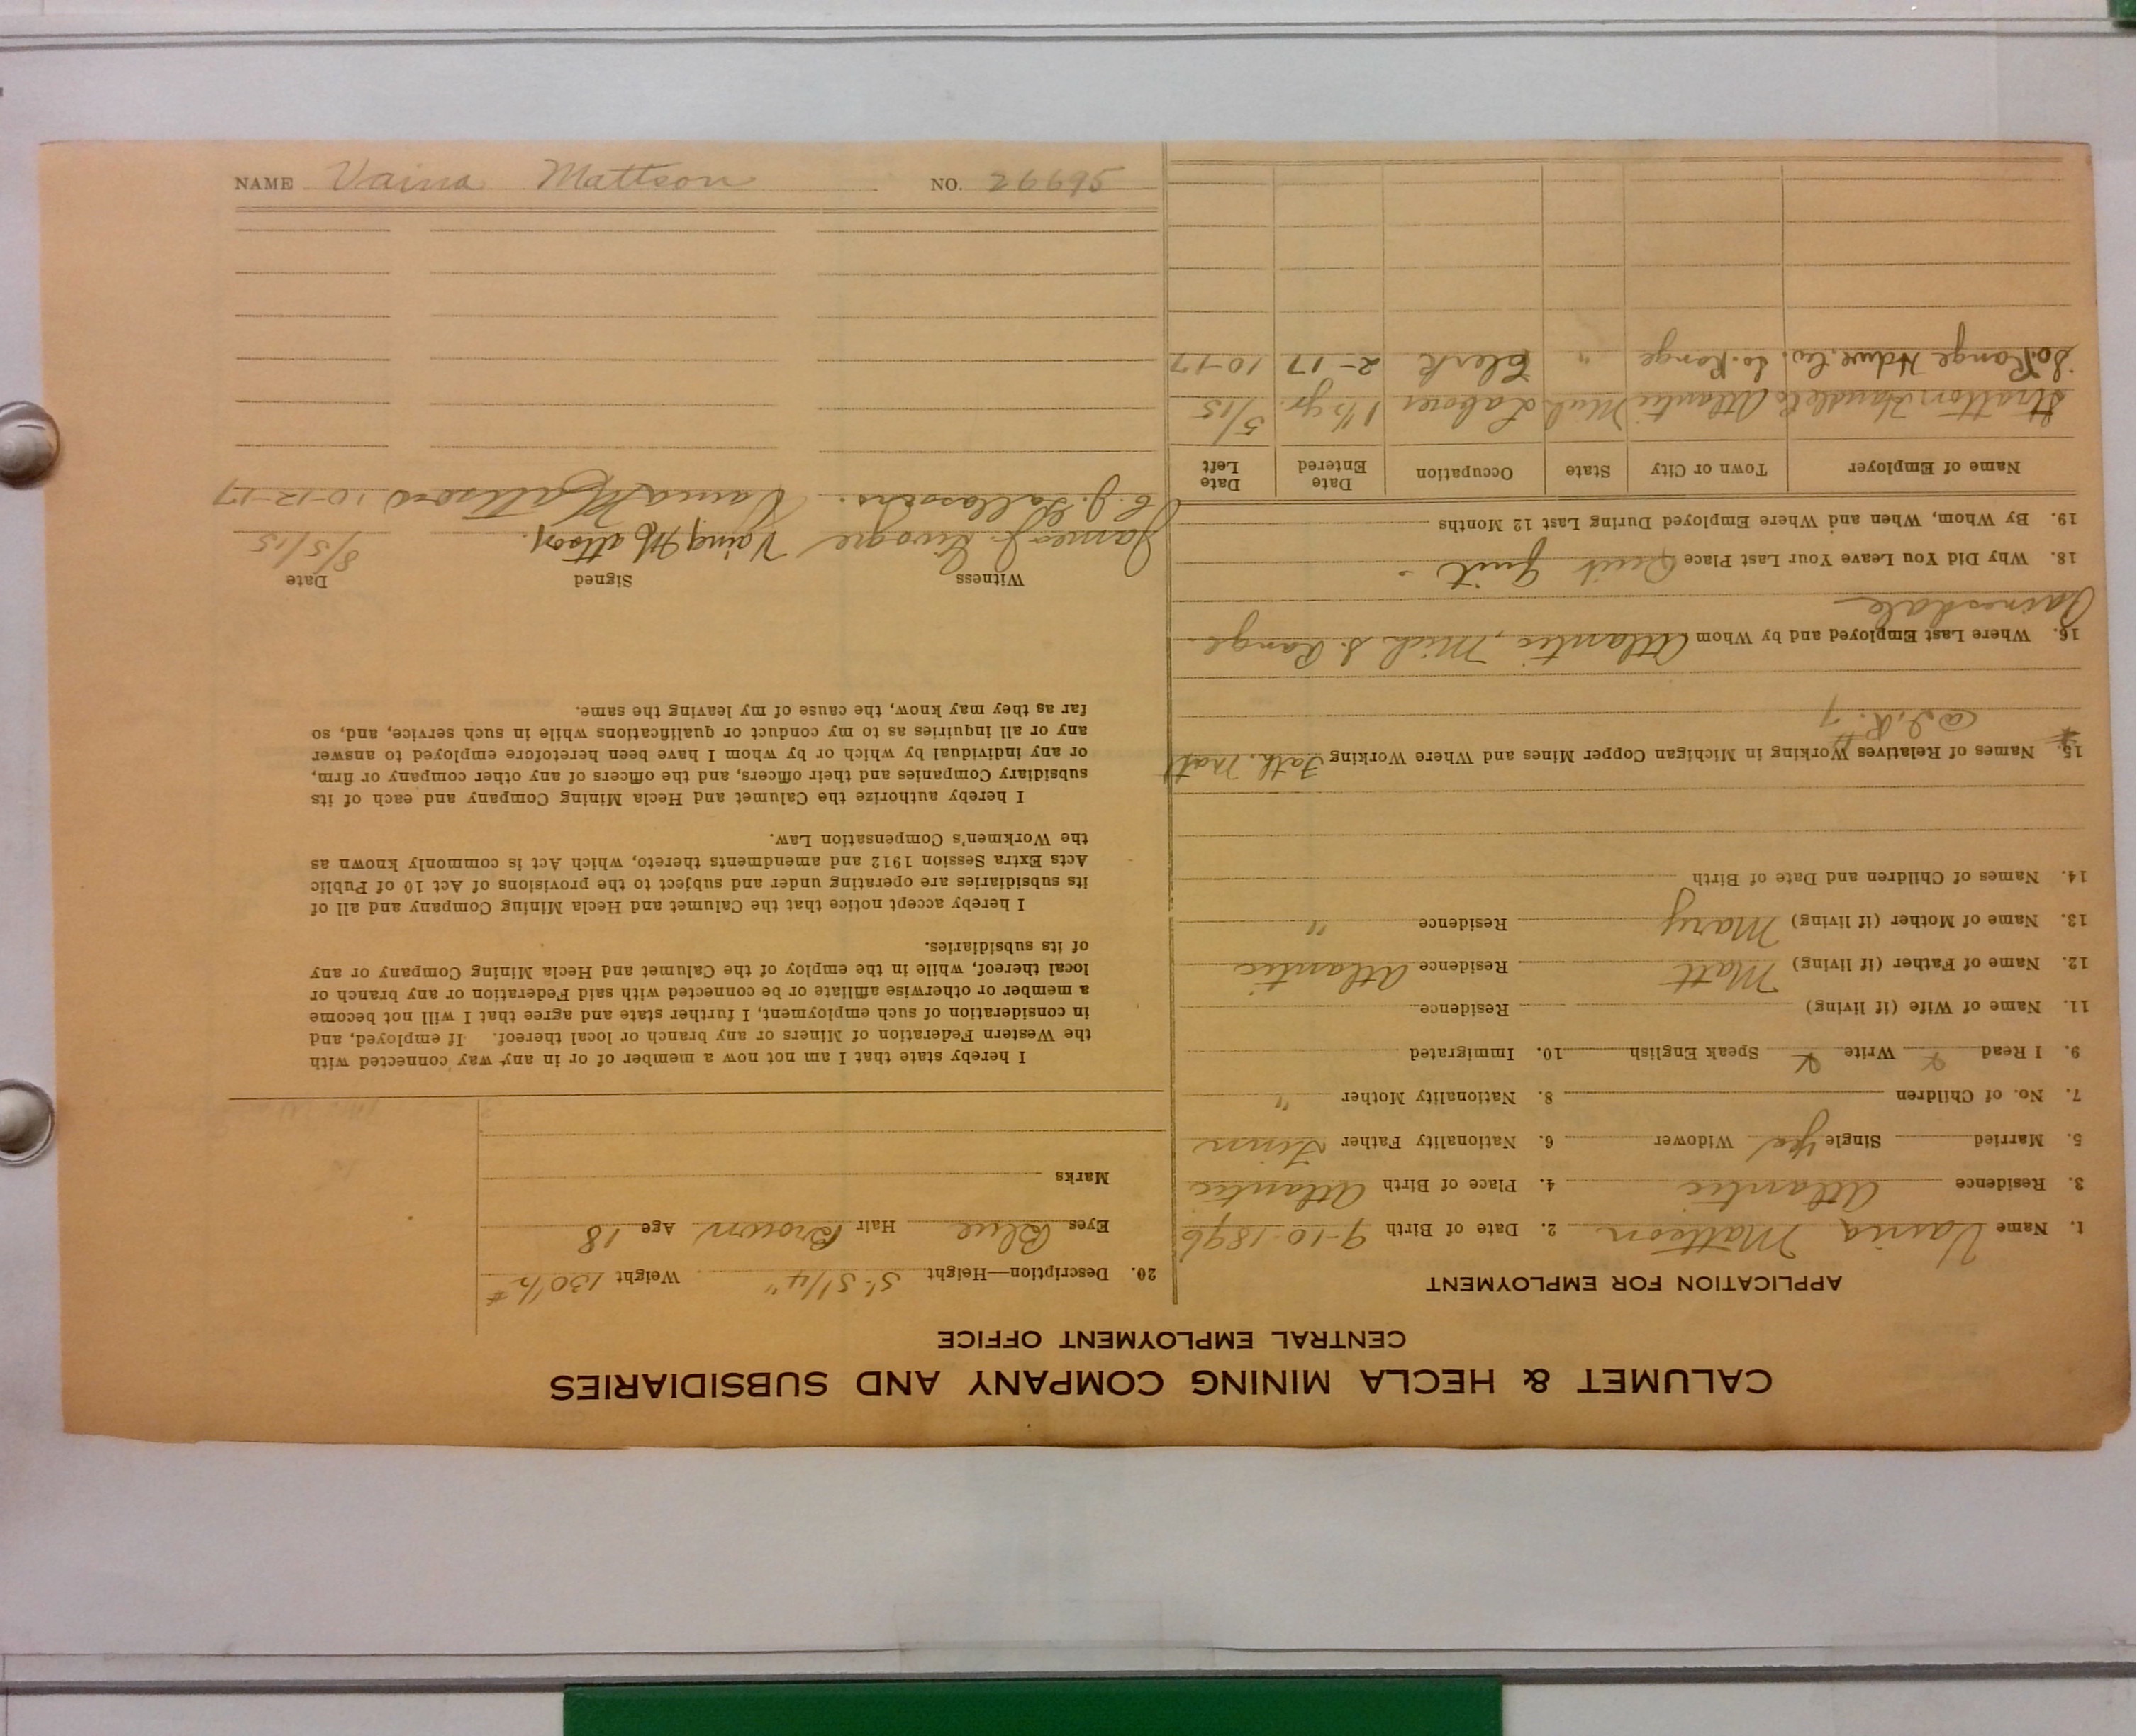 NAME Vaina Mattson NO. 26695
CALUMET & HECLA MINING COMPANY AND SUBSIDIARIES
CENTRAL EMPLOYMENT OFFICE
APPLICATION FOR EMPLOYMENT
1. Name Vaina Mattson 2. Date of Birth 9-10-1896
3. Residence Atlantic 4. Place of Birth Atlantic
5. Married Single Yes Widower 6. Nationality Father Finn
7. No. of Children 8. Nationality Mother "
9. I Read X Write X Speak English 10. Immigrated
11. Name of Wife (if living) Residence
12. Name of Father (if living) Matt Residence Atlantic
13. Name of Mother (if living) Mary Residence "
14. Names of Children and Date of Birth
15. Names of Relatives Working in Michigan Copper Mines and Where Working Fath. Matt
16. Where Last Employed and by Whom Atlantic, Mich S. Range
Painesdale
18. Why Did You Leave Your Last Place Quit Quit
19. By Whom, When and Where Employed During Last 12 Months
Name of Employer Town or City State Occupation Date Entered Date Left
Stratton Atlantic Mich Laborer 1 1/2 yr. 5/15
So. Range Hdwe. Co. So. Range " Clerk 2-17 10-17
20. Description—Height 5' 5 1/4" Weight 130 1/2 #
Eyes Blue Hair Brown Age 18
Marks
I hereby state that I am not now a member of or in any way connected with
the Western Federation of Miners or any branch or local thereof. If employed, and
in consideration of such employment, I further state and agree that I will not become
a member or otherwise affiliate or be connected with said Federation or any branch or
local thereof, while in the employ of the Calumet and Hecla Mining Company or any
of its subsidiaries.
I hereby accept notice that the Calumet and Hecla Mining Company and all of
its subsidiaries are operating under and subject to the provisions of Act 10 of Public
Acts Extra Session 1912 and amendments thereto, which Act is commonly known as
the Workmen's Compensation Law.
I hereby authorize the Calumet and Hecla Mining Company and each of its
subsidiary Companies and their officers, and the officers of any other company or firm,
or any individual by which or by whom I have been heretofore employed to answer
any or all inquiries as to my conduct or qualifications while in such service, and, so
far as they may know, the cause of my leaving the same.
Witness Signed Date
James J. Vaina Mattson. 8/5/15
C. J. Vaina Mattson 10-12-17